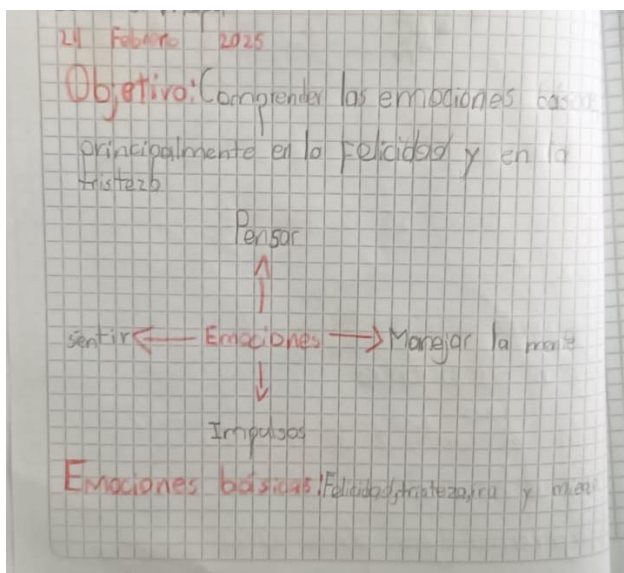 24 Febrero 2025
Objetivo: Comprender las emociones
principalmente en la Felicidad y en la
tristeza
Pensar
sentir ← Emociones → Manejar la mente
Impulsos
Emociones básicas: Felicidad, tristeza, ira y